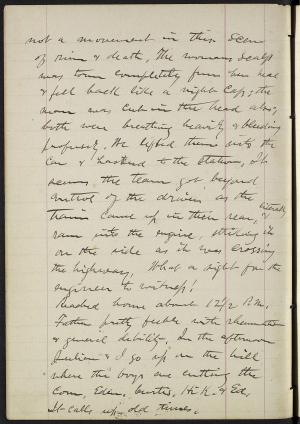 not a movement in this scene
of ruin & death. The womans scalp
was torn completely from her head
& fell back like a night cap; the
man was cut in the head also;
both were breathing heavily & bleeding
profusely. We lifted them into the
car & hastened to the station. It
seems the team got beyond
control of the driver as the
train came up in their rear, & literally
ran into the engine, striking it
on the side as it was crossing
the highway. What a sight for the
engineer to witness!
Reached home about 12 1/2 P.M.
Father pretty feeble with rheumatism
& general debility. In the afternoon
Julian & I go up on the hill
where the boys are cutting the
corn, Eden, Curtis, & Ed.
It calls up old times.